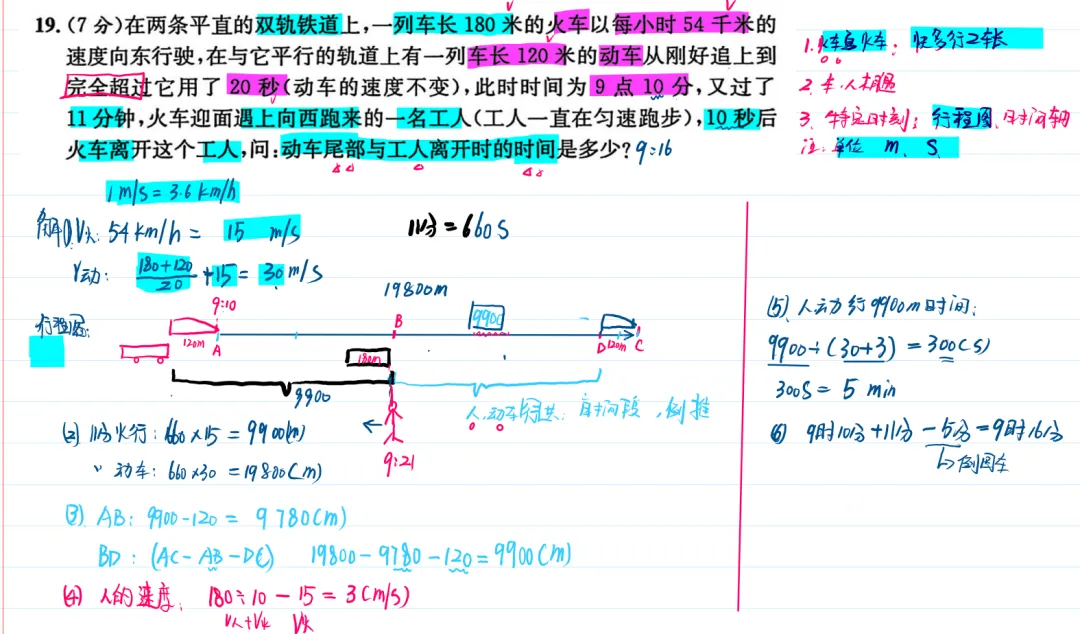 19. (7 分)在两条平直的双轨铁道上,一列车长 180 米的火车以每小时 54 千米的
速度向东行驶,在与它平行的轨道上有一列车长 120 米的动车从刚好追上到
完全超过它用了 20 秒(动车的速度不变),此时时间为 9 点 10 分,又过了
11 分钟,火车迎面遇上向西跑来的一名工人(工人一直在匀速跑步),10 秒后
火车离开这个工人,问:动车尾部与工人离开时的时间是多少?9:16
1. 火车 火车: 快多行2车长
2 车.人相遇
3. 特定时刻: 行程图、时间轴
注: 单位 m、S
1 m/s = 3.6 km/h
解(1). V火: 54 km/h = 15 m/s
11分 = 660 S
V动: (180+120)/20 + 15 = 30 m/s
19800m
行程图:
9:10
120m A
B
9900
D 120m C
180m
9900
人.动车行共: 时间段,倒推
9:21
(2) 11分火行: 660×15 = 9900(m)
〃 动车: 660×30 = 19800(m)
(3) AB: 9900-120 = 9780(m)
BD: (AC-AB-DC) 19800-9780-120=9900(m)
(4) 人的速度: 180÷10 - 15 = 3(m/s)
V人+V火 V火
(5) 人动行9900m时间:
9900÷(30+3) = 300(s)
300S = 5 min
(6) 9时10分+11分-5分=9时16分